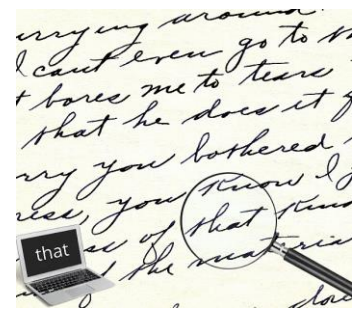 urrying around
I cant even go to
bores me to tears
that he does it
rry you bothered
ress, you know I
ss of that kind
of the materia
that